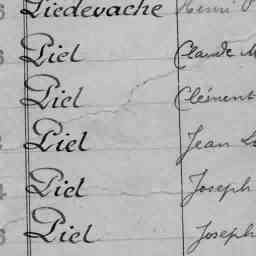 Piedevache Henri
Piel Claude M
Piel Clément
Piel Jean
Piel Joseph
Piel Joseph